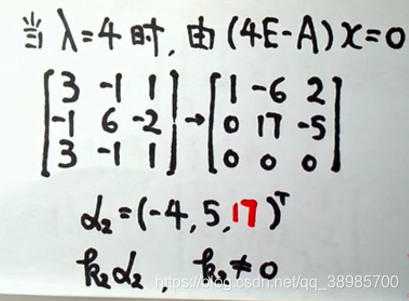 当 λ=4 时, 由 (4E-A)x=0
[3 -1 1; -1 6 -2; 3 -1 1] → [1 -6 2; 0 17 -5; 0 0 0]
α₂=(-4,5,17)ᵀ
k₂α₂, k₂≠0
https://blog.csdn.net/qq_38985700